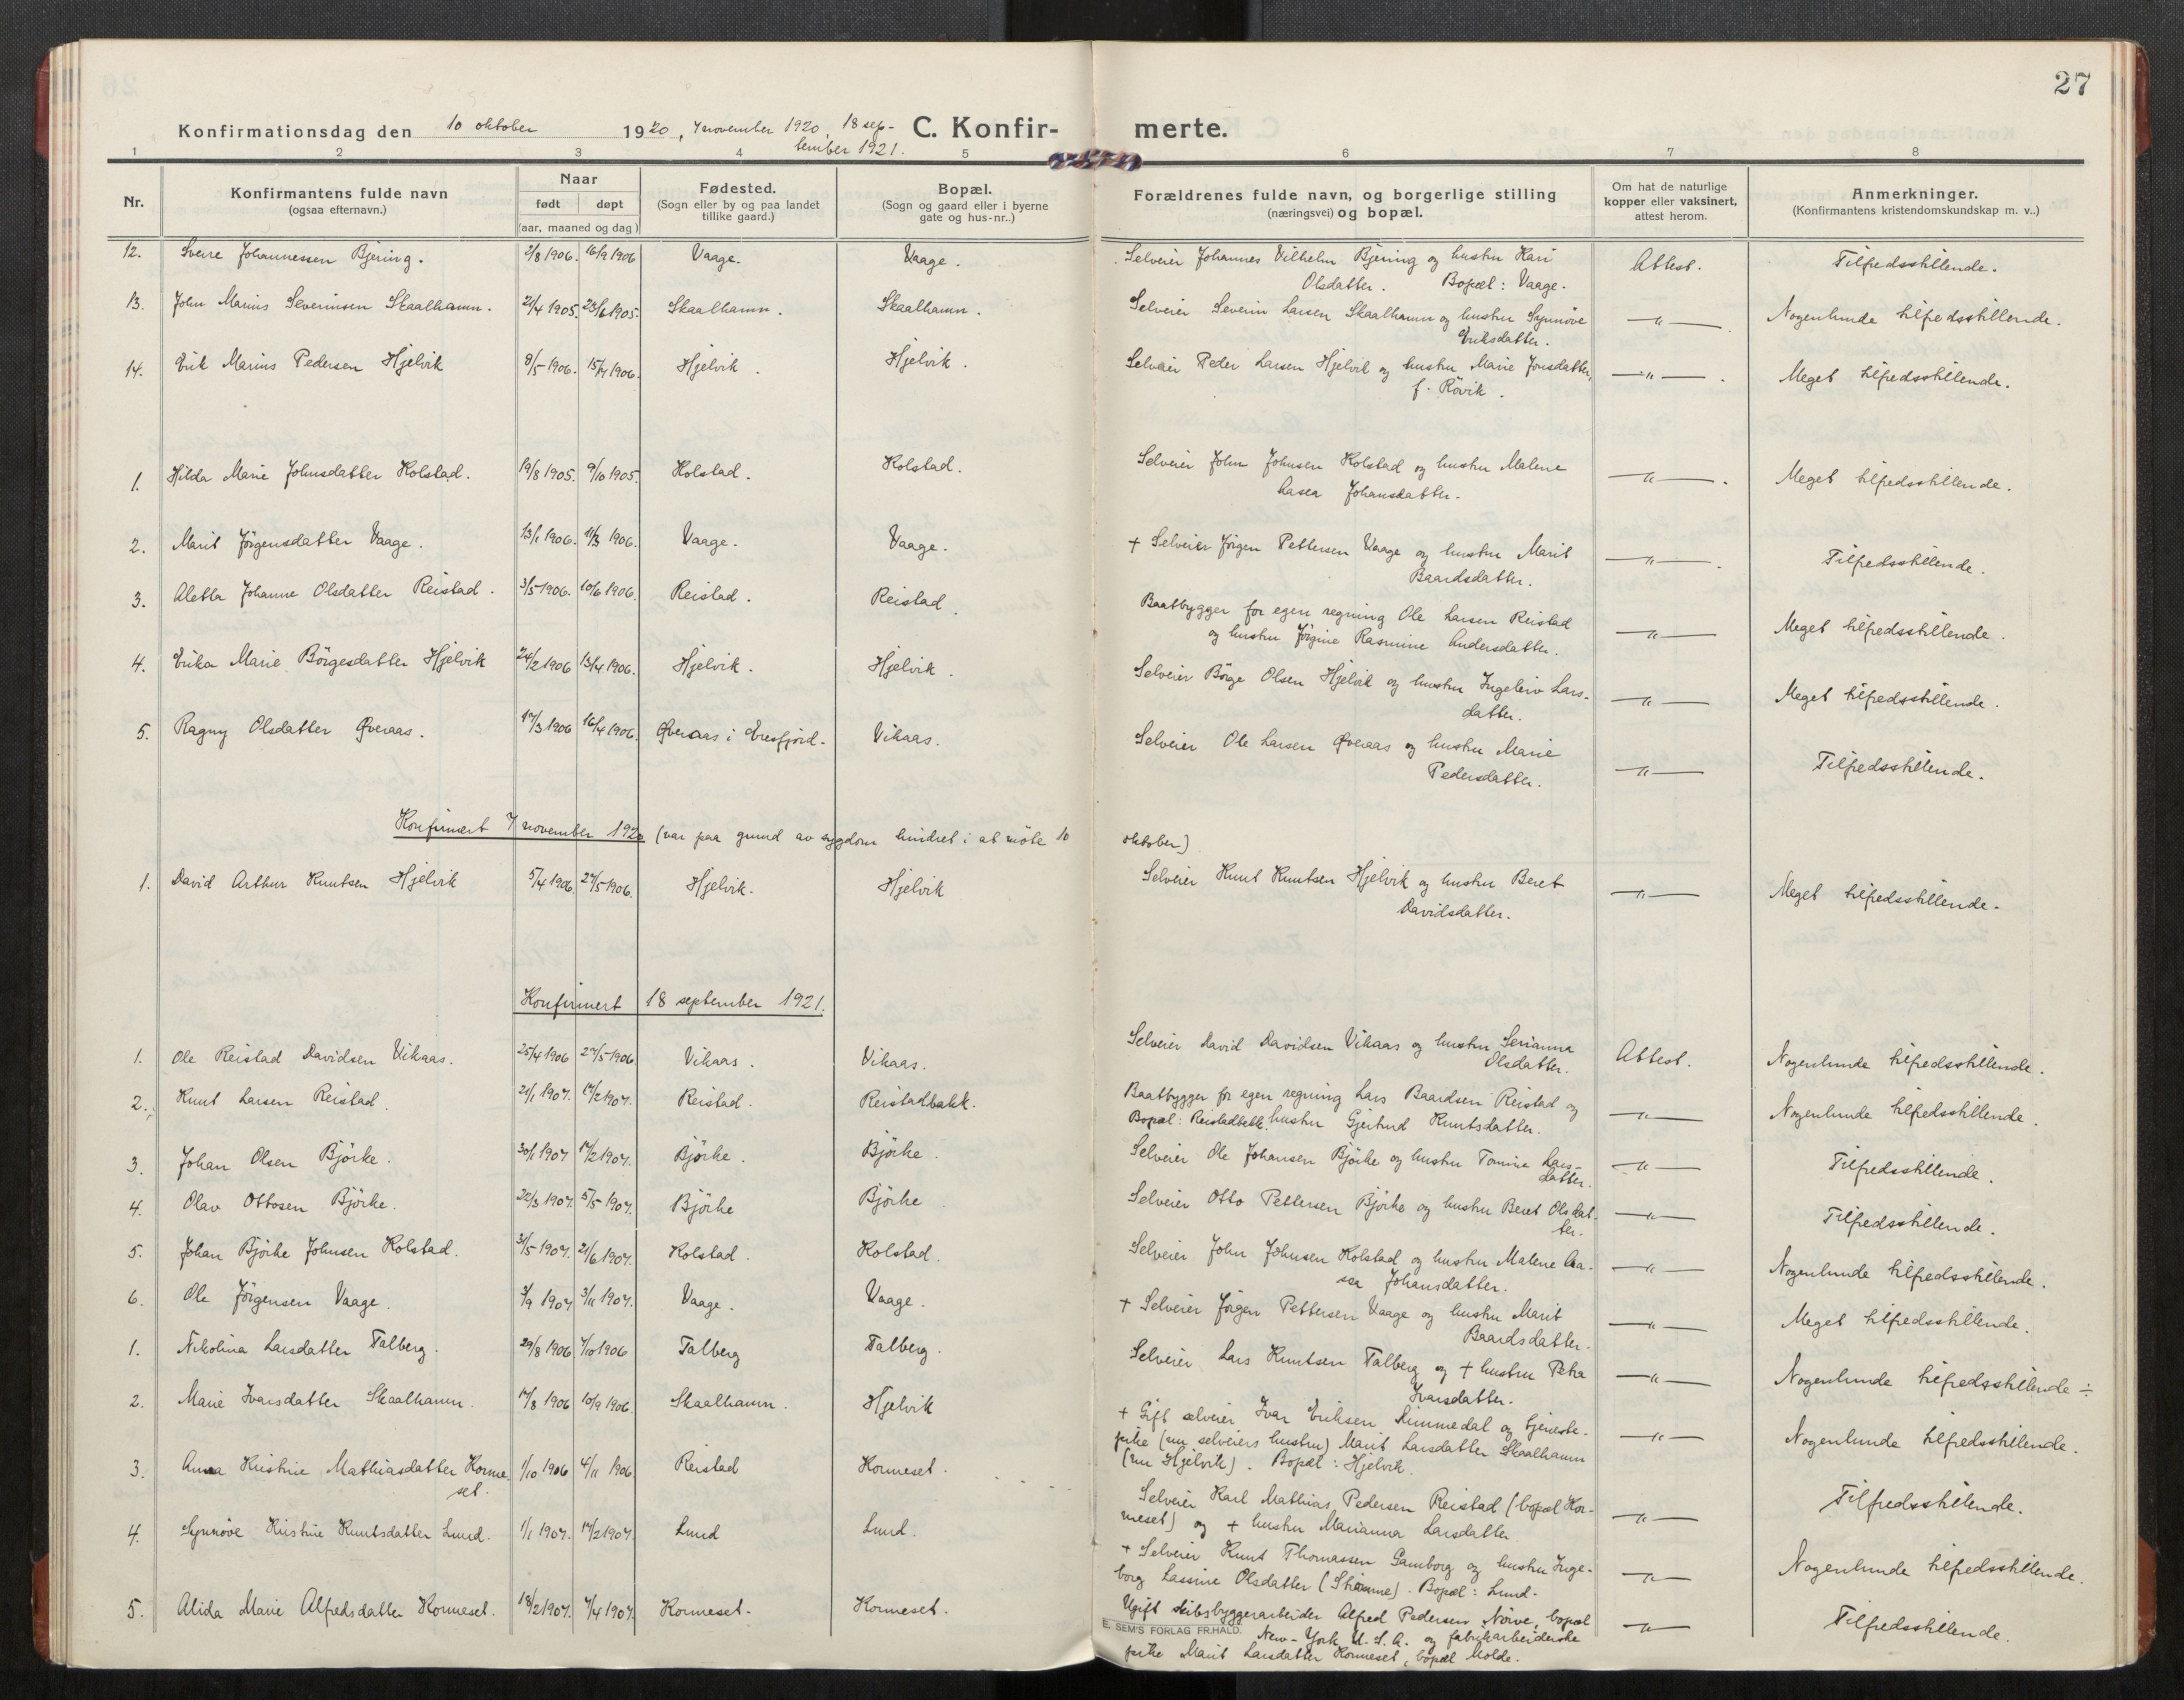 27
Konfirmationsdag den 10 oktober 1920, 7 november 1920, 18 sep- C. Konfir- merte.
tember 1921.
1 2 3 4 5 6 7 8
Nr.
Konfirmantens fulde navn
(ogsaa efternavn.)
Naar
født døpt
(aar, maaned og dag)
Fødested.
(Sogn eller by og paa landet
tillike gaard.)
Bopæl.
(Sogn og gaard eller i byerne
gate og hus-nr..)
Forældrenes fulde navn, og borgerlige stilling
(næringsvei) og bopæl.
Om hat de naturlige
kopper eller vaksinert,
attest herom.
Anmerkninger.
(Konfirmantens kristendomskundskap m. v..)
12. Sverre Johannessen Bjering. 2/8 1906. 16/9 1906 Vaage. Vaage. Selveier Johannes Vilhelm Bjering og hustru Kari Attest. Tilfredsstillende.
Olsdatter. Bopæl: Vaage.
13. John Marius Severinsen Skaalhamn. 21/4 1905. 23/6 1905. Skaalhamn. Skaalhamn. Selveier Severin Larsen Skaalhamn og hustru Synnöve —"— Nogenlunde tilfredsstillende.
Eriksdatter.
14. Erik Marius Pedersen Hjelvik 9/5 1906. 15/7 1906. Hjelvik. Hjelvik. Selveier Peder Larsen Hjelvik og hustru Marie Jonsdatter, —"— Meget tilfredsstillende.
f. Rövik.
1. Hilda Marie Johnsdatter Kolstad. 19/8 1905. 9/10 1905. Kolstad. Kolstad. Selveier John Johnsen Kolstad og hustru Malene —"— Meget tilfredsstillende.
Lasea Johansdatter.
2. Marit Jörgensdatter Vaage. 13/1 1906. 11/3 1906. Vaage. Vaage. + Selveier Jörgen Pettersen Vaage og hustru Marit —"— Tilfredsstillende.
Baardsdatter.
3. Aletta Johanne Olsdatter Reistad. 3/5 1906. 10/6 1906. Reistad. Reistad. Baatbygger for egen regning Ole Larsen Reistad —"— Meget tilfredsstillende.
og hustru Jörgine Rasmine Andersdatter.
4. Erika Marie Börgesdatter Hjelvik 24/2 1906 13/4 1906. Hjelvik. Hjelvik. Selveier Börge Olsen Hjelvik og hustru Ingeleiv Lars- —"— Meget tilfredsstillende.
datter.
5. Ragny Olsdatter Øveraas. 17/3 1906 16/4 1906. Øveraas i Eresfjord. Vikaas. Selveier Ole Larsen Øveraas og hustru Marie —"— Tilfredsstillende.
Pedersdatter.
Konfirmert 7 november 1920 (var paa grund av sygdom hindret i at möte 10 oktober)
1. David Arthur Knutsen Hjelvik 5/4 1906. 27/5 1906. Hjelvik. Hjelvik Selveier Knut Knutsen Hjelvik og hustru Beret —"— Meget tilfredsstillende.
Davidsdatter.
Konfirmert 18 september 1921.
1. Ole Reistad Davidsen Vikaas. 25/4 1906 27/5 1906. Vikaas. Vikaas. Selveier David Davidsen Vikaas og hustru Serianna Attest. Nogenlunde tilfredsstillende.
Olsdatter.
2. Knut Larsen Reistad. 21/1 1907. 17/2 1907. Reistad. Reistadbakk. Baatbygger for egen regning Lars Baardsen Reistad og —"— Nogenlunde tilfredsstillende.
Bopæl: Reistadbakk. hustru Gjertrud Knutsdatter.
3. Johan Olsen Björke. 30/1 1907 17/2 1907. Björke. Björke. Selveier Ole Johansen Björke og hustru Tomine Lars- —"— Tilfredsstillende.
datter.
4. Olav Ottosen Björke. 22/3 1907. 5/5 1907. Björke Björke Selveier Otto Pettersen Björke og hustru Beret Olsdat- —"— Tilfredsstillende.
ter.
5. Johan Björke Johnsen Kolstad. 31/5 1907. 21/6 1907. Kolstad. Kolstad. Selveier John Johnsen Kolstad og hustru Malene La- —"— Nogenlunde tilfredsstillende.
sea Johansdatter.
6. Ole Jörgensen Vaage. 3/9 1907 3/11 1907. Vaage. Vaage. + Selveier Jörgen Pettersen Vaage og hustru Marit —"— Meget tilfredsstillende.
Baardsdatter.
1. Nikolina Larsdatter Talberg. 29/8 1906 7/10 1906 Talberg Talberg. Selveier Lars Knutsen Talberg og + hustru Petra —"— Nogenlunde tilfredsstillende ÷
Ivarsdatter.
2. Marie Ivarsdatter Skaalhamn. 17/8 1906 10/9 1906 Skaalhamn. Hjelvik + Gift selveier Ivar Eriksen Rimmedal og tjeneste- —"— Nogenlunde tilfredsstillende.
pike (nu selveiers hustru) Marit Larsdatter Skaalhamn
(nu Hjelvik). Bopæl: Hjelvik.
3. Anna Kristine Mathiasdatter Korme- 1/10 1906 4/11 1906 Reistad Kormeset. Selveier Karl Mathias Pedersen Reistad (bopæl Kor- —"— Tilfredsstillende.
set. meset) og + hustru Marianna Larsdatter
4. Synnöve Kristine Knutsdatter Lund. 1/1 1907. 17/2 1907. Lund Lund. + Selveier Knut Thomassen Gamborg og hustru Inge- —"— Nogenlunde tilfredsstillende.
borg Lassine Olsdatter. Bopæl: Lund.
5. Alida Marie Alfredsdatter Kormeset. 18/2 1907. 7/4 1907. Kormeset. Kormeset. Ugift skibsbyggerarbeider Alfred Pedersen Nörve, bopæl —"— Tilfredsstillende.
E. SEM'S FORLAG FR.HALD. New-York U.S.A. og fabrikarbeiderske
pike Marit Larsdatter Kormeset, bopæl Molde.